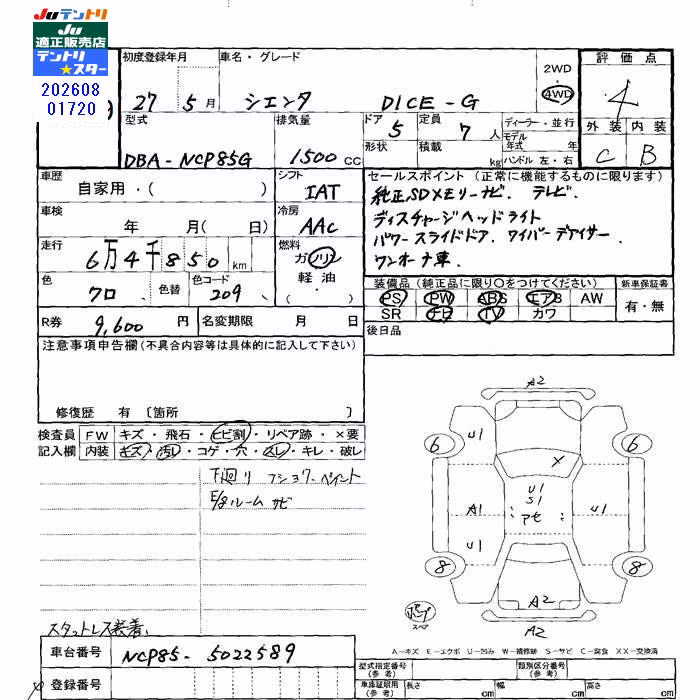 Juテントリ
Ju
適正販売店
テントリ
★スター
202608
01720
初度登録年月
27 年 5 月
車名・グレード
シエンタ DICE-G
2WD
・
4WD
評価点
4
外装 内装
C B
型式
DBA-NCP85G
排気量
1500 CC
ドア 5
形状
定員 7 人
積載 kg
ディーラー・並行
モデル
年式 年
ハンドル 左・右
車歴
自家用・( )
シフト
IAT
車検
年 月( 日)
冷房
AAC
走行
6万4千850 km
燃料
ガソリン
軽油
・
色
クロ
色替
色コード
209
R券 9,600 円
名変期限 月 日
セールスポイント (正常に機能するものに限ります)
純正SDメモリーナビ. テレビ.
ディスチャージヘッドライト
パワースライドドア. ワイパーデアイサー.
ワンオーナ車.
装備品(純正品に限り○をつけてください)
PS PW ABS エアB AW
SR ナビ TV カワ
新車保証書
有・無
後日品
注意事項申告欄(不具合内容等は具体的に記入して下さい)
修復歴 有 〔箇所 〕
検査員 FW キズ・飛石・ヒビ割・リペア跡・×要
記入欄 内装 キズ・汚レ・コゲ・穴・スレ・キレ・破レ
下廻り
ルーム サビ
スタットレス装着、
車台番号 NCP85-5022589
登録番号
A2
U1
6
6
X
U1
S1
アセ
A1
U1
U1
8
8
A2
ポンプ
スペア
A2
A-キズ E-エクボ U-凹み W-補修跡 S-サビ C-腐食 XX-交換済
型式指定番号
(参考)
類別区分番号
(参考)
車庫証明用
(参考)
長さ cm 幅 cm 高さ cm